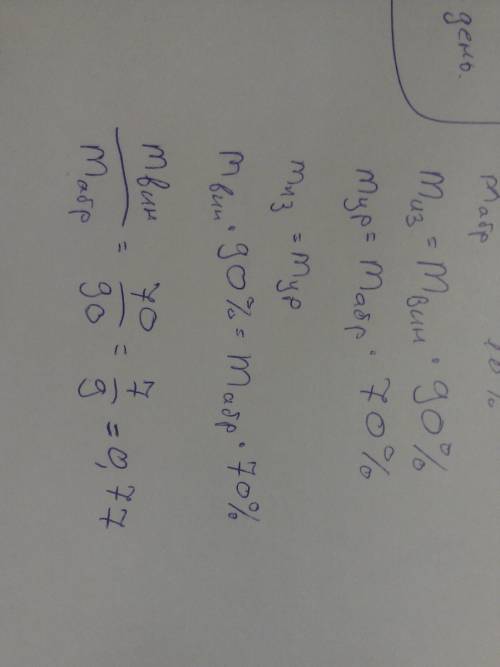 день.
mабр 10%
mиз = mвин · 90%
mур = mабр · 70%
mиз = mур
mвин · 90% = mабр · 70%
mвин / mабр = 70 / 90 = 7 / 9 = 0,77